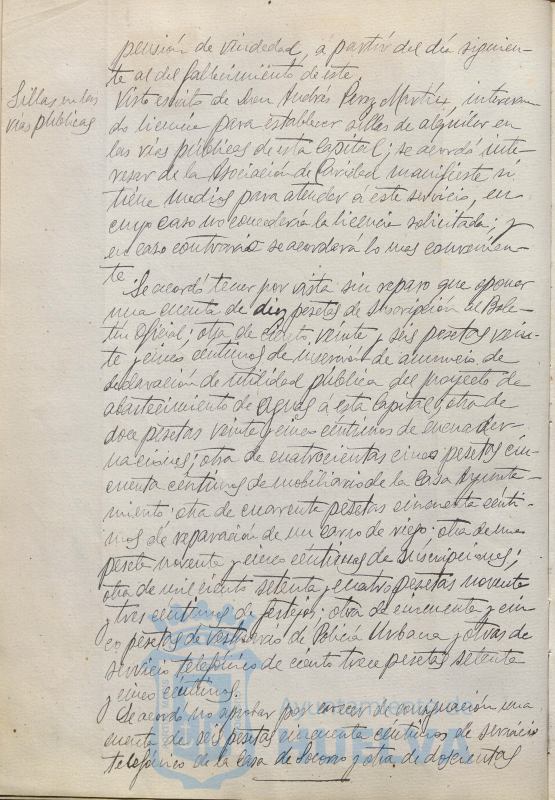 pensión de viudedad, á partir del día siguien-
te al del fallecimiento de éste.
Sillas en las
vías públicas
Visto escrito de Don Andrés Perez Martín, interesan-
do licencia para establecer sillas de alquiler en
las vías públicas de esta Capital; se acordó inte-
resar de la Asociación de Caridad manifieste si
tiene medios para atender á este servicio, en
cuyo caso no concedería la licencia solicitada; y
en caso contrario se acordará lo mas convenien-
te.
Se acordó tener por vista sin reparo que oponer
una cuenta de diez pesetas de suscripción al Bole-
tín Oficial; otra de ciento veinte y seis pesetas vein-
te y cinco céntimos de inserción de anuncio de
declaración de utilidad pública del proyecto de
abastecimiento de aguas á esta Capital; otra de
doce pesetas veinte y cinco céntimos de encuader-
naciones; otra de cuatrocientas cinco pesetas cin-
cuenta céntimos de mobiliario de la Casa Ayunta-
miento; otra de cuarenta pesetas cincuenta cénti-
mos de reparación de un carro de riego; otra de una
peseta noventa y cinco céntimos de suscripciones;
otra de mil ciento setenta y cuatro pesetas noventa
tres céntimos de festejos; otra de cincuenta y cin-
co pesetas de vestuario de Policía Urbana y otras de
servicio telefónico de ciento trece pesetas setenta
y cinco céntimos.
Se acordó no aprobar por carecer de consignación una
cuenta de seis pesetas cincuenta céntimos de servicio
telefónico de la Casa de Socorro y otra de doscientas
Ayuntamiento de
HUELVA